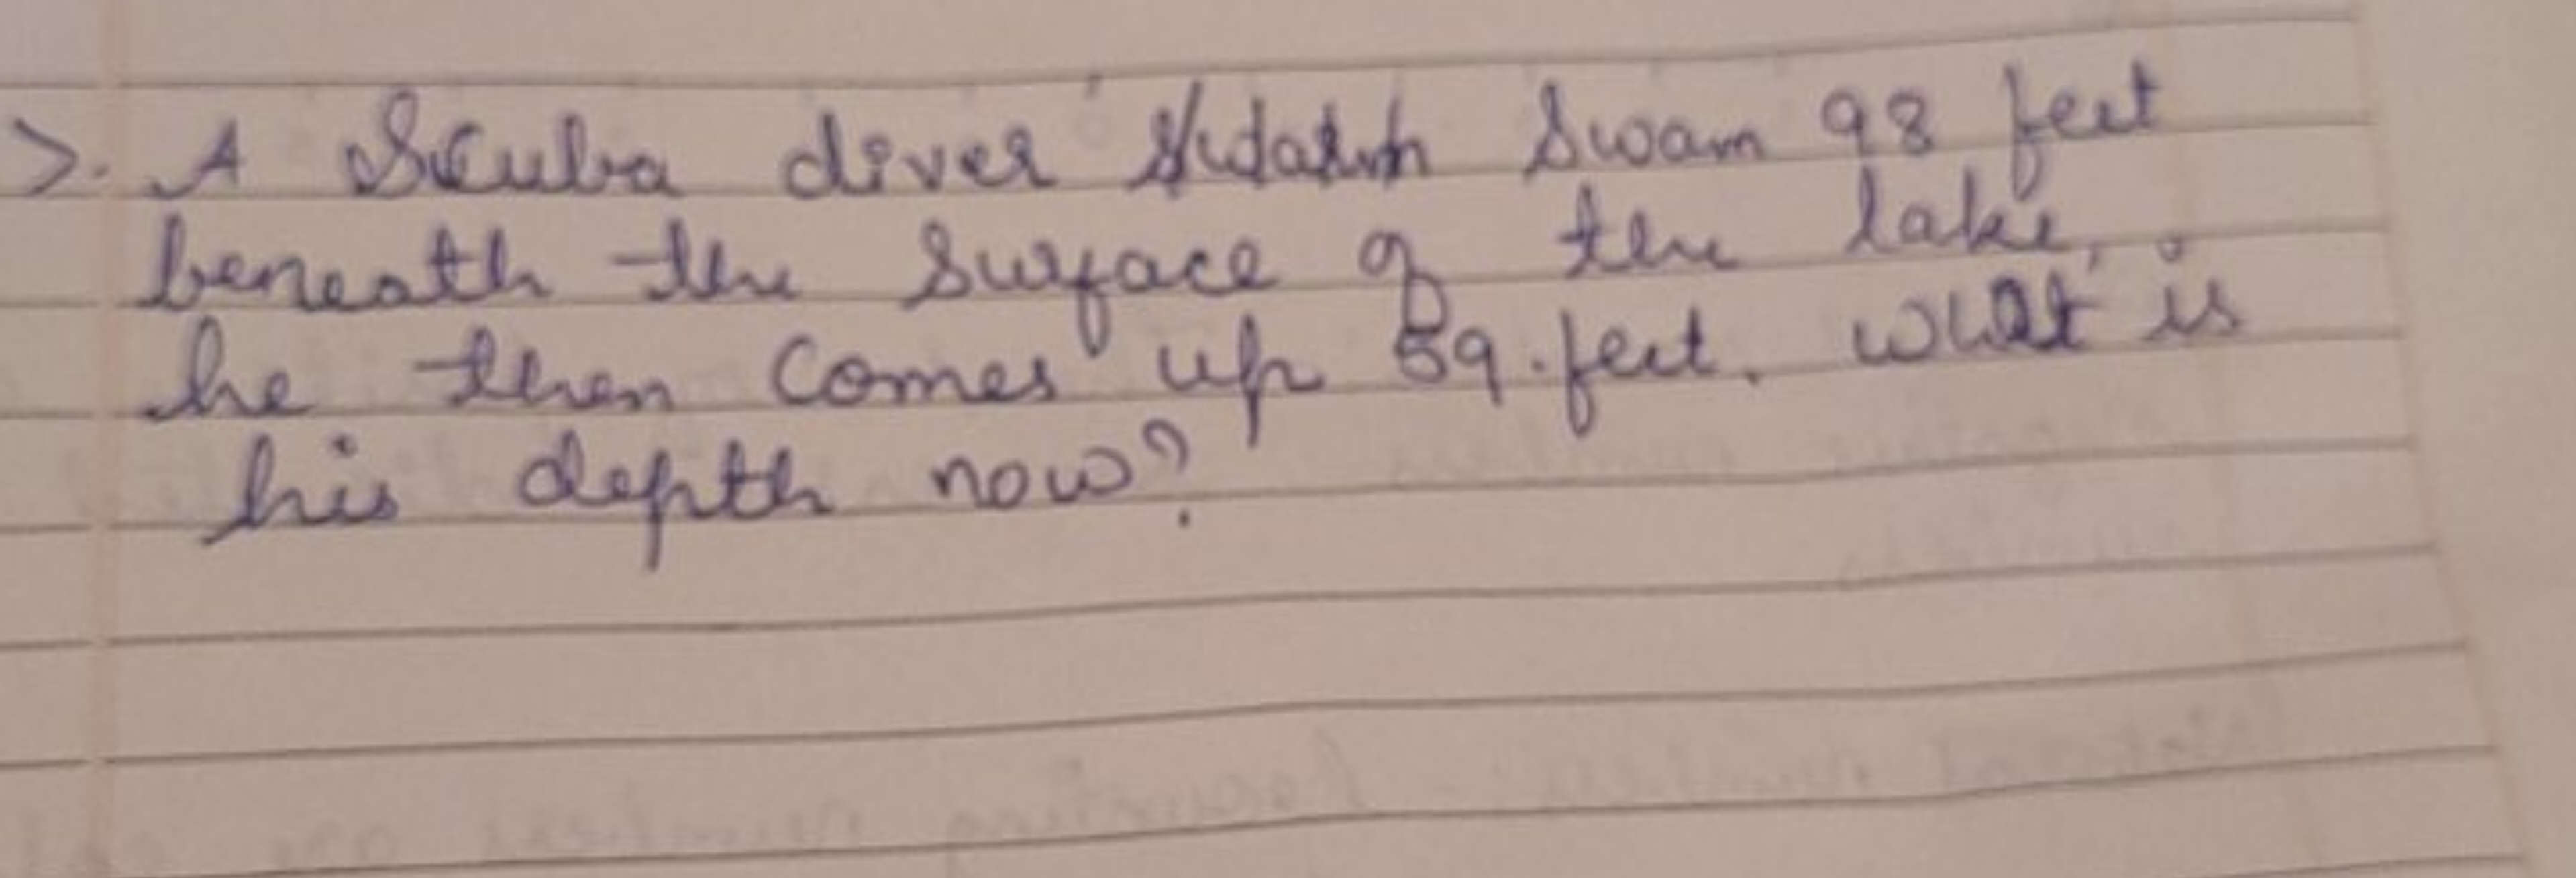 >. A Scuba diver Swam 98 feet
beneath the surface of the lake,
he then comes up 59 feet. what is
his depth now?